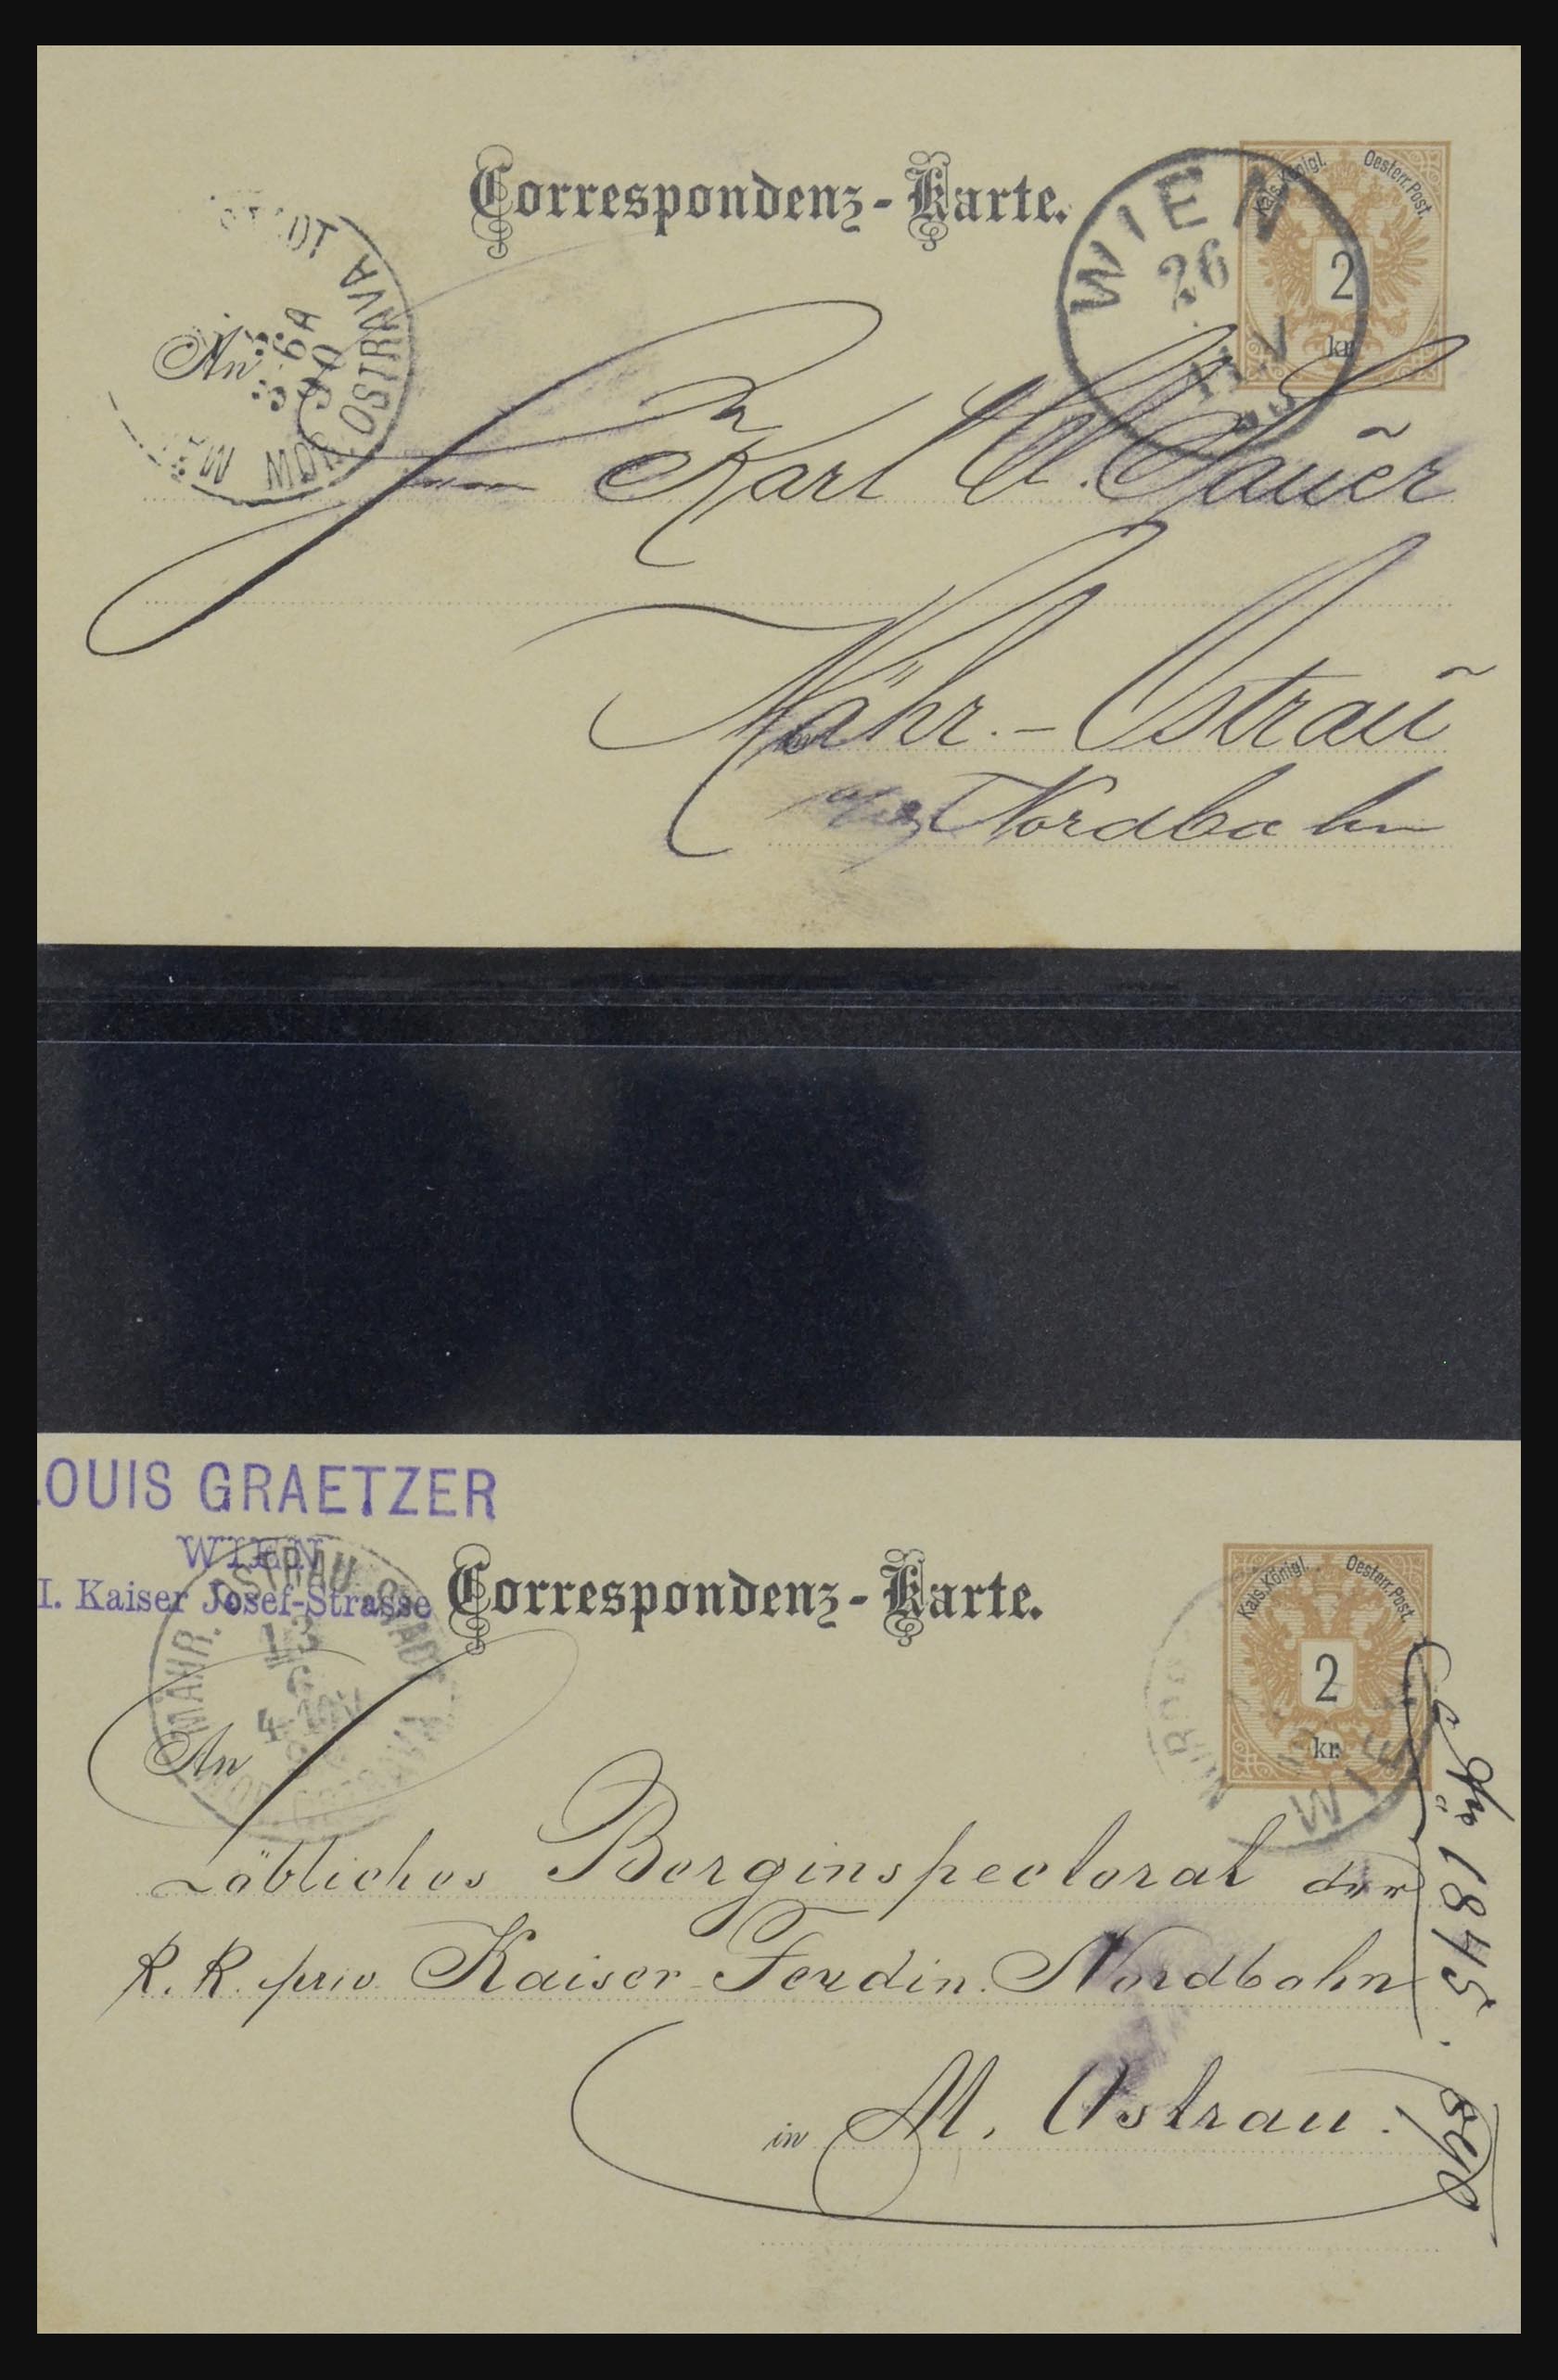 Correspondenz-Karte.
Kais. Königl. Oesterr. Post.
2
kr.
WIEN
26
OSTRAVA
An
Karl A. Sauer
Mähr.-Ostrau
Nordbahn
LOUIS GRAETZER
WIEN
I. Kaiser Josef-Strasse
Correspondenz-Karte.
Kais. Königl. Oesterr. Post.
2
kr.
WIE
MÄHR. OSTRAU STADT
An
Löbliches Berginspectorat der
K. K. priv. Kaiser Ferdin. Nordbahn
in M. Ostrau.
1845.